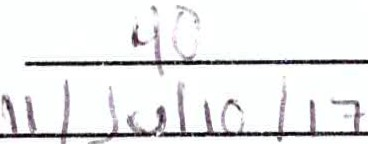 40
11/Julio/17